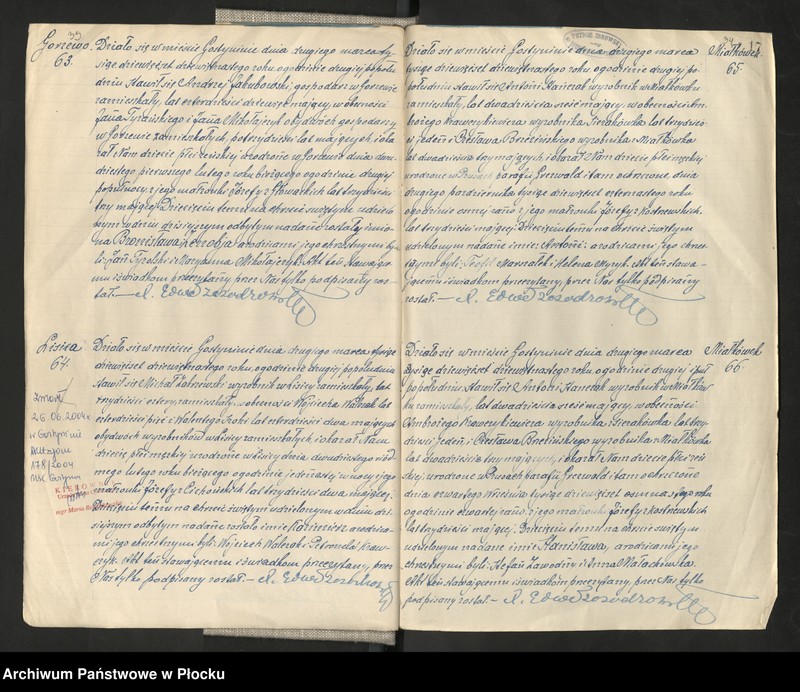 33
Gorzewo
63.
Działo się w mieście Gostyninie dnia drugiego marca ty-
siąc dziewięćset dziewiętnastego roku o godzinie drugiej po połu
dniu. Stawił się Andrzej Jakubowski, gospodarz w Gorzewie
zamieszkały, lat czterdzieści dziewięć mający, w obecności
Jana Tyralskiego i Jana Mikołajczyk obydwóch gospodarzy
w Gorzewie zamieszkałych, po trzydzieści lat mających i oka
zał Nam dziecię płci żeńskiej urodzone w Gorzewie dnia dwu-
dziestego pierwszego lutego roku bieżącego o godzinie drugiej
po północy z jego małżonki Józefy z lat trzydzieści
trzy mającej. Dziecięciu temu na chrzcie świętym udzielo
nym w dniu dzisiejszym odbytym nadane zostały imio-
na Bronisława, a rodzicami jego chrzestnymi by
li: Jan Tyralski i Maryanna Mikołajczyk. Akt ten stawającе-
mu i świadkom przeczytany, przez Nas tylko podpisany zos-
tał.—
Lisica
64.
Działo się w mieście Gostyninie dnia drugiego marca tysiąc
dziewięćset dziewiętnastego roku, o godzinie drugiej po południu.
Stawił się Michał wyrobnik w Lisicy zamieszkały, lat
trzydzieści cztery mający, w obecności Wojciecha lat
czterdzieści pięć i Walentego lat czterdzieści dwa mających
obydwóch wyrobników w Lisicy zamieszkałych i okazał Nam
dziecię płci męzkiej urodzone w Lisicy dnia dwudziestego siód
mego lutego roku bieżącego o godzinie jedenastej w nocy z jego
małżonki Józefy z Cichońskich lat trzydzieści dwa mającej.
Dziecięciu temu na chrzcie świętym udzielonym w dniu dzi
siejszym odbytym nadane zostało imie Kazimierz, a rodzica-
mi jego chrzestnymi byli: Wojciech i Petronela Kraw-
czyk. Akt ten stawającemu i świadkom przeczytany, przez
Nas tylko podpisany został.—
Zmarł
26.06.2004r.
w Gostyninie
Akt zgonu
178/2004
USC Gostynin
KIEROWNIK
mgr Maria
34
Miałkówek
65.
Działo się w mieście Gostyninie dnia drugiego marca
tysiąc dziewięćset dziewiętnastego roku o godzinie drugiej po
południu. Stawił się Antoni wyrobnik w Miałkówku
zamieszkały, lat dwadzieścia sześć mający, w obecności Am-
brożego Krawczykiewicza wyrobnika z Sierakówka lat trzydzieś-
ci jeden i Czesława Brzezińskiego wyrobnika z Miałkówka
lat dwadzieścia trzy mających, i okazał Nam dziecię płci męzkiej
urodzone w parafii Grewald i tam ochrzcone, dnia
drugiego października tysiąc dziewięćset czternastego roku
o godzinie ósmej rano z jego małżonki Józefy z Kostrzewskich
lat trzydzieści mającej. Dziecięciu temu na chrzcie świętym
udzielonym nadane imie: Antoni, a rodzicami jego chrzes-
tnymi byli: Teofil Marszałek i Helena. Akt ten stawa-
jącemu i świadkom przeczytany, przez Nas tylko podpisany
został.—
Miałkówek
66.
Działo się w mieście Gostyninie dnia drugiego marca
tysiąc dziewięćset dziewiętnastego roku o godzinie drugiej i pół
po południu. Stawił się Antoni wyrobnik w Miałków
ku zamieszkały, lat dwadzieścia sześć mający, w obecności
Ambrożego Krawczykiewicza wyrobnika z Sierakówka lat trzy-
dzieści jeden, i Czesława Brzezińskiego wyrobnika z Miałkówka
lat dwadzieścia trzy mających, i okazał Nam dziecię płci żeń-
skiej, urodzone w parafii Grewald i tam ochrzcone
dnia czwartego Września tysiąc dziewięćset roku
o godzinie czwartej rano z jego małżonki Józefy z Kostrzewskich
lat trzydzieści mającej. Dziecięciu temu na chrzcie świętym
udzielonym nadane imie Stanisława, a rodzicami jego
chrzestnymi byli: Stefan Zawodny i Anna Małachowska.
Akt ten stawającemu i świadkom przeczytany, przez Nas tylko
podpisany został.—
Archiwum Państwowe w Płocku